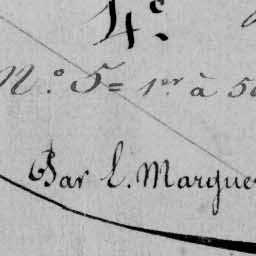 4.e
N.o 5 = 1er à 5
Par L. Margue